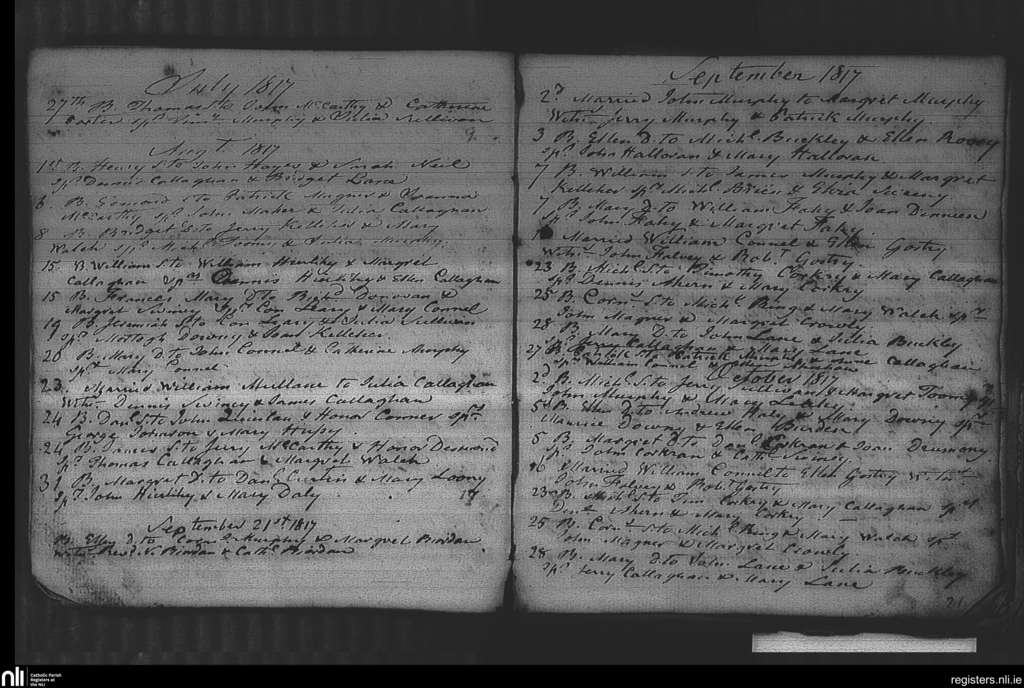 July 1817
27th B. Thomas S. to John McCarthy & Catherine
Carter Sp.rs Murphy & Julia Sullivan
9.
Aug.t 1817
1st B. Henry S. to John Hayes & Sarah Neil
Sp.s Dennis Callaghan & Bridget Lane
6 B. Edmond S. to Patrick Magner & Joanna
McCarthy Sp.s John Maher & Julia Callaghan
8 B. Bridget D. to Jerry Kelleher & Mary
Walsh Sp.s Mich.l & Julia Murphy
15 B. William S. to William Hertihy & Margret
Callaghan Sp.rs Dennis Hertihy & Ellen Callaghan
15 B. Frances Mary D. to Donovan &
Margret Swiney Sp.rs Con Leary & Mary Connel
19 B. Jeremiah S. to Con Leary & Julia Sullivan
Sp.s Mortogh Downy & Joan Kelleher
20 B. Mary D. to John Connel & Catherine Murphy
Sp.s Mary Connel
23. Married William Mullane to Julia Callaghan
Witn. Dennis Swiney & James Callaghan
24 B. Dan.l S. to John Quinlan & Honor Connor Sp.rs
George Johnson & Mary
24 B. James S. to Jerry McCarthy & Honor Desmond
Sp.s Thomas Callaghan & Margret Walsh
31 B. Margret D. to Dan.l Curtin & Mary Loony
Sp.s John Hertihy & Mary Daly
September 21st 1817
B. Ellen D. to Corn.s Murphy & Margret Riordan
Witn. Rev.d N. Riordan & Cath. Riordan
September 1817
2d Married John Murphy to Margret Murphy
Witn. Jerry Murphy & Patrick Murphy.
3 B. Ellen D. to Mich.l Buckley & Ellen
Sp.s John Halloran & Mary Halloran
7 B. William S. to James Murphy & Margret
Kelleher Sp.s Mich.l Brien & Swiney
7 B. Mary D. to William Fahy & Joan Dinneen
Sp.s John Fahy & Margret Fahy
Married William Connel & Ellen Gostry
Witn. John Halvey & Rob.t Gostry
23 B. Mich.l S. to Timothy Corkry & Mary Callaghan
Sp.s Dennis Ahern & Mary Corkry
25 B. Corn.s S. to Mich.l Ring & Mary Walsh Sp.rs
John Magner & Margret Crowly
28 B. Mary D. to John Lane & Julia Buckley
Sp.s Jerry Callaghan & Mary Lane
27 B. S. to Patrick Murphy & Callaghan
Sp.rs William Connel &
October 1817
2d B. Mich.l S. to Jerry & Margret
John Murphy & Mary Leary
5 B. D. to Andrew Haly & Mary Downy Sp.rs
Maurice Downy & Ellen
5 B. Margret D. to Dan.l Corkran & Joan
Sp.s John Corkran & Cath. Swiney
Married William Connel to Ellen Gostry
John Halvey & Rob.t Gostry
23 B. Mich.l S. to Tim Corkry & Mary Callaghan Sp.rs
Den.s Ahern & Mary Corkry
25 B. Corn.s S. to Mich.l Ring & Mary Walsh Sp.rs
John Magner & Margret Crowly
28 B. Mary D. to John Lane & Julia Buckley
Sp.s Jerry Callaghan & Mary Lane
nli Catholic Parish
Registers at
the NLI
registers.nli.ie